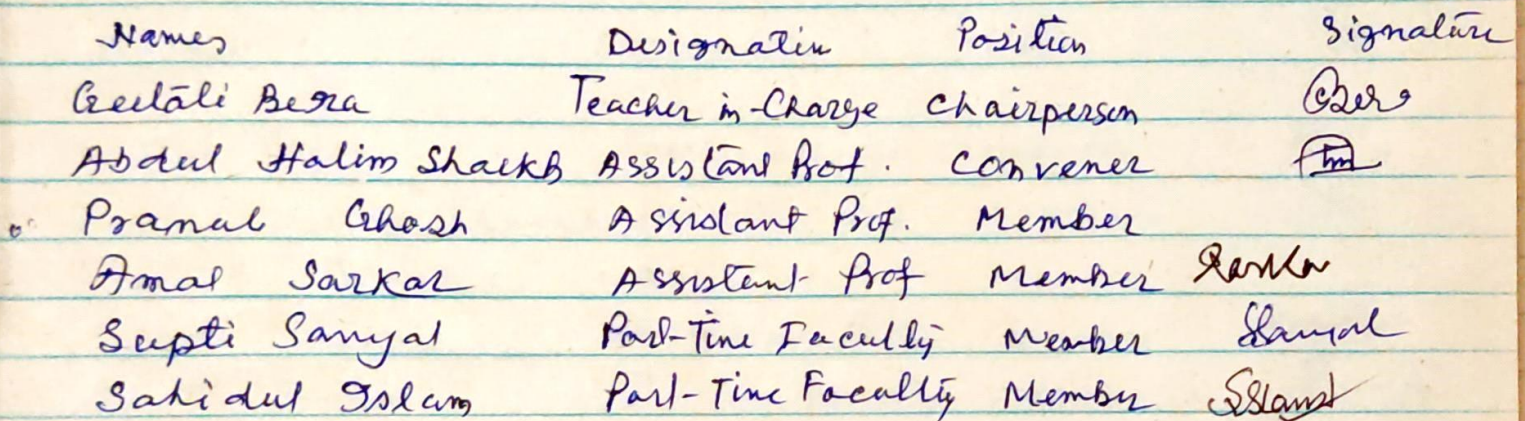 Names Designation Position Signature
Geetali Bera Teacher in-Charge Chairperson GBera
Abdul Halim Shaikh Assistant Prof. Convener
Pranab Ghosh Assistant Prof. Member
Amal Sarkar Assistant Prof Member Sarkar
Supti Sanyal Part-Time Faculty Member SSanyal
Sahidul Islam Part-Time Faculty Member